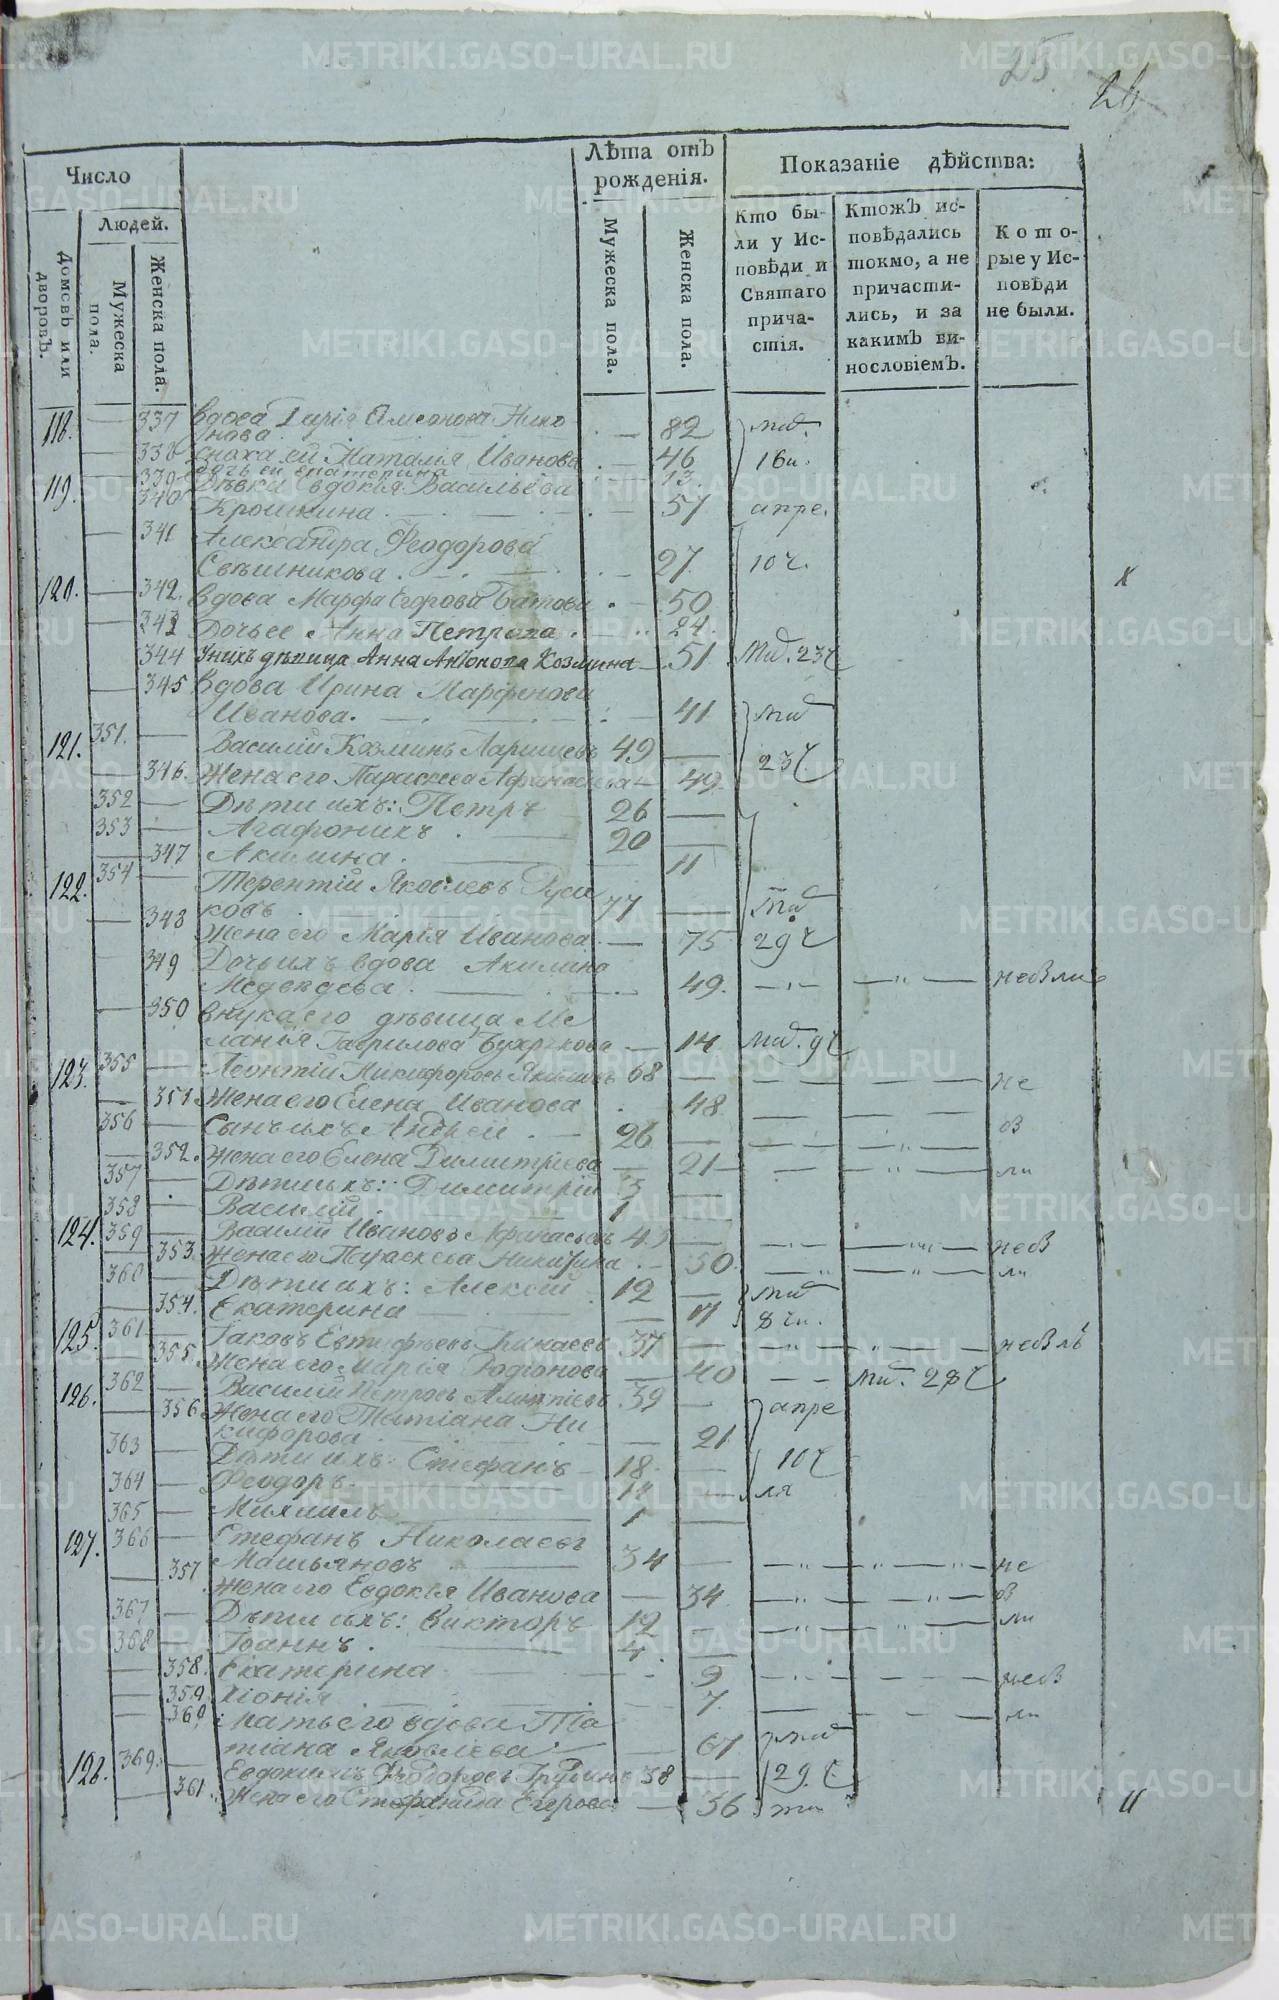 25.
26
Число
Людей.
Домовъ или дворовъ.
Мужеска пола.
Женска пола.
Лѣта отъ рожденія.
Мужеска пола.
Женска пола.
Показаніе дѣйства:
Кто бы-
ли у Ис-
повѣди и
Святаго
прича-
стія.
Ктожъ ис-
повѣдались
токмо, а не
причасти-
лись, и за
какимъ ви-
нословіемъ.
Кото-
рые у Ис-
повѣди
не были.
118. 337 вдова Симонова Нико
нова 82
338 сноха ей Наталія Иванова 46
339 дочь ей Екатерина 13
119. 340 Дѣвки Евдокія Васильева
Крошкина 57 апре.
341 Александра Феодорова
Свѣшникова 27 10 ч.
120. 342. вдова Марфа Егорова Батова 50
343 Дочь ее Анна Петрова 24
344 У нихъ дѣвица Анна Антонова Козмина 51 23 ч
345 вдова Ирина Парфенова
Иванова. 41
121. 351. Василій Козминъ Ларишевъ 49 23 ч
346. Жена его Параскева Афанасьева 49
352 Дѣти ихъ: Петръ 26
353 Агафоникъ 20
347 Акилина 11
122. 354 Терентій Яковлевъ Руси
ковъ 77
348 Жена его Марія Иванова 75 29 ч
349 Дочь ихъ вдова Акилина
Медвѣдева 49. небыли
350 внука его дѣвица Ме
ланія Гаврилова Бухрякова 14 9 ч
123. 355 Леонтій Никифоровъ Якиминъ 68 не
351 Жена его Елена Иванова 48
356 Сынъ ихъ Андрей 26 бы
352. Жена его Елена Димитріева 21 ли
357 Дѣти ихъ: Димитрій 3
358 Василій 1
124. 359 Василій Ивановъ Афанасьевъ 43 небы
353. Жена его Параскева Никитина 50 ли
360 Дѣти ихъ: Алексій 12
354. Екатерина 17 8 чи.
125. 361 Іаковъ Евтифѣевъ 37
355. Жена его Марія Родіонова 40 28 ч
126. 362 Василій Петровъ 39 апре
356 Жена его Татіана Ни
кифорова 21
363 Дѣти ихъ: Стефанъ 18 10 ч
364 Феодоръ 11 ля
365 Михаилъ 1
127. 366 Стефанъ Николаевъ
Машьяновъ 34 не
357 Жена его Евдокія Иванова 34 бы
367 Дѣти ихъ: Викторъ 12 ли
368 Іоаннъ 4
358. Екатерина 9 небы
359 Хіонія 7 ли
360 Мать его вдова Та
тіана Яковлева 67
128. 369. Евдокимъ Феодоровъ 38 29 ч
361 Жена его Стефанида Егорова 36
METRIKI.GASO-URAL.RU